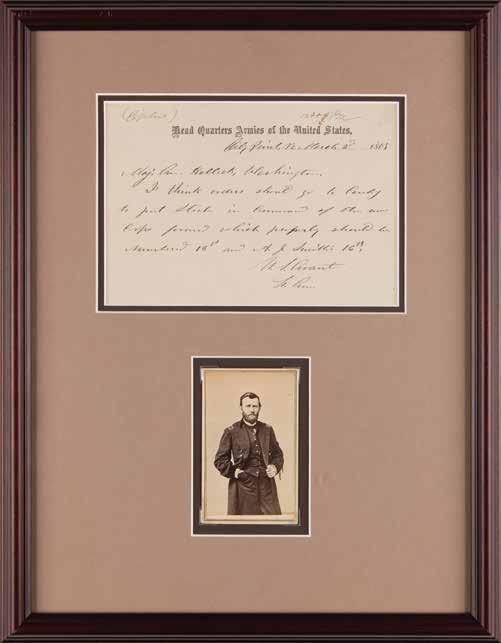 (Cipher)
Head Quarters Armies of the United States,
City Point, Va. March 2d 1865
Maj. Gn. Halleck, Washington.
I think orders should go to Canby
to put Steele in Command of the new
Corps formed which properly should be
numbered 13th and A. J. Smith's 16th.
U. S. Grant
Lt. Gen